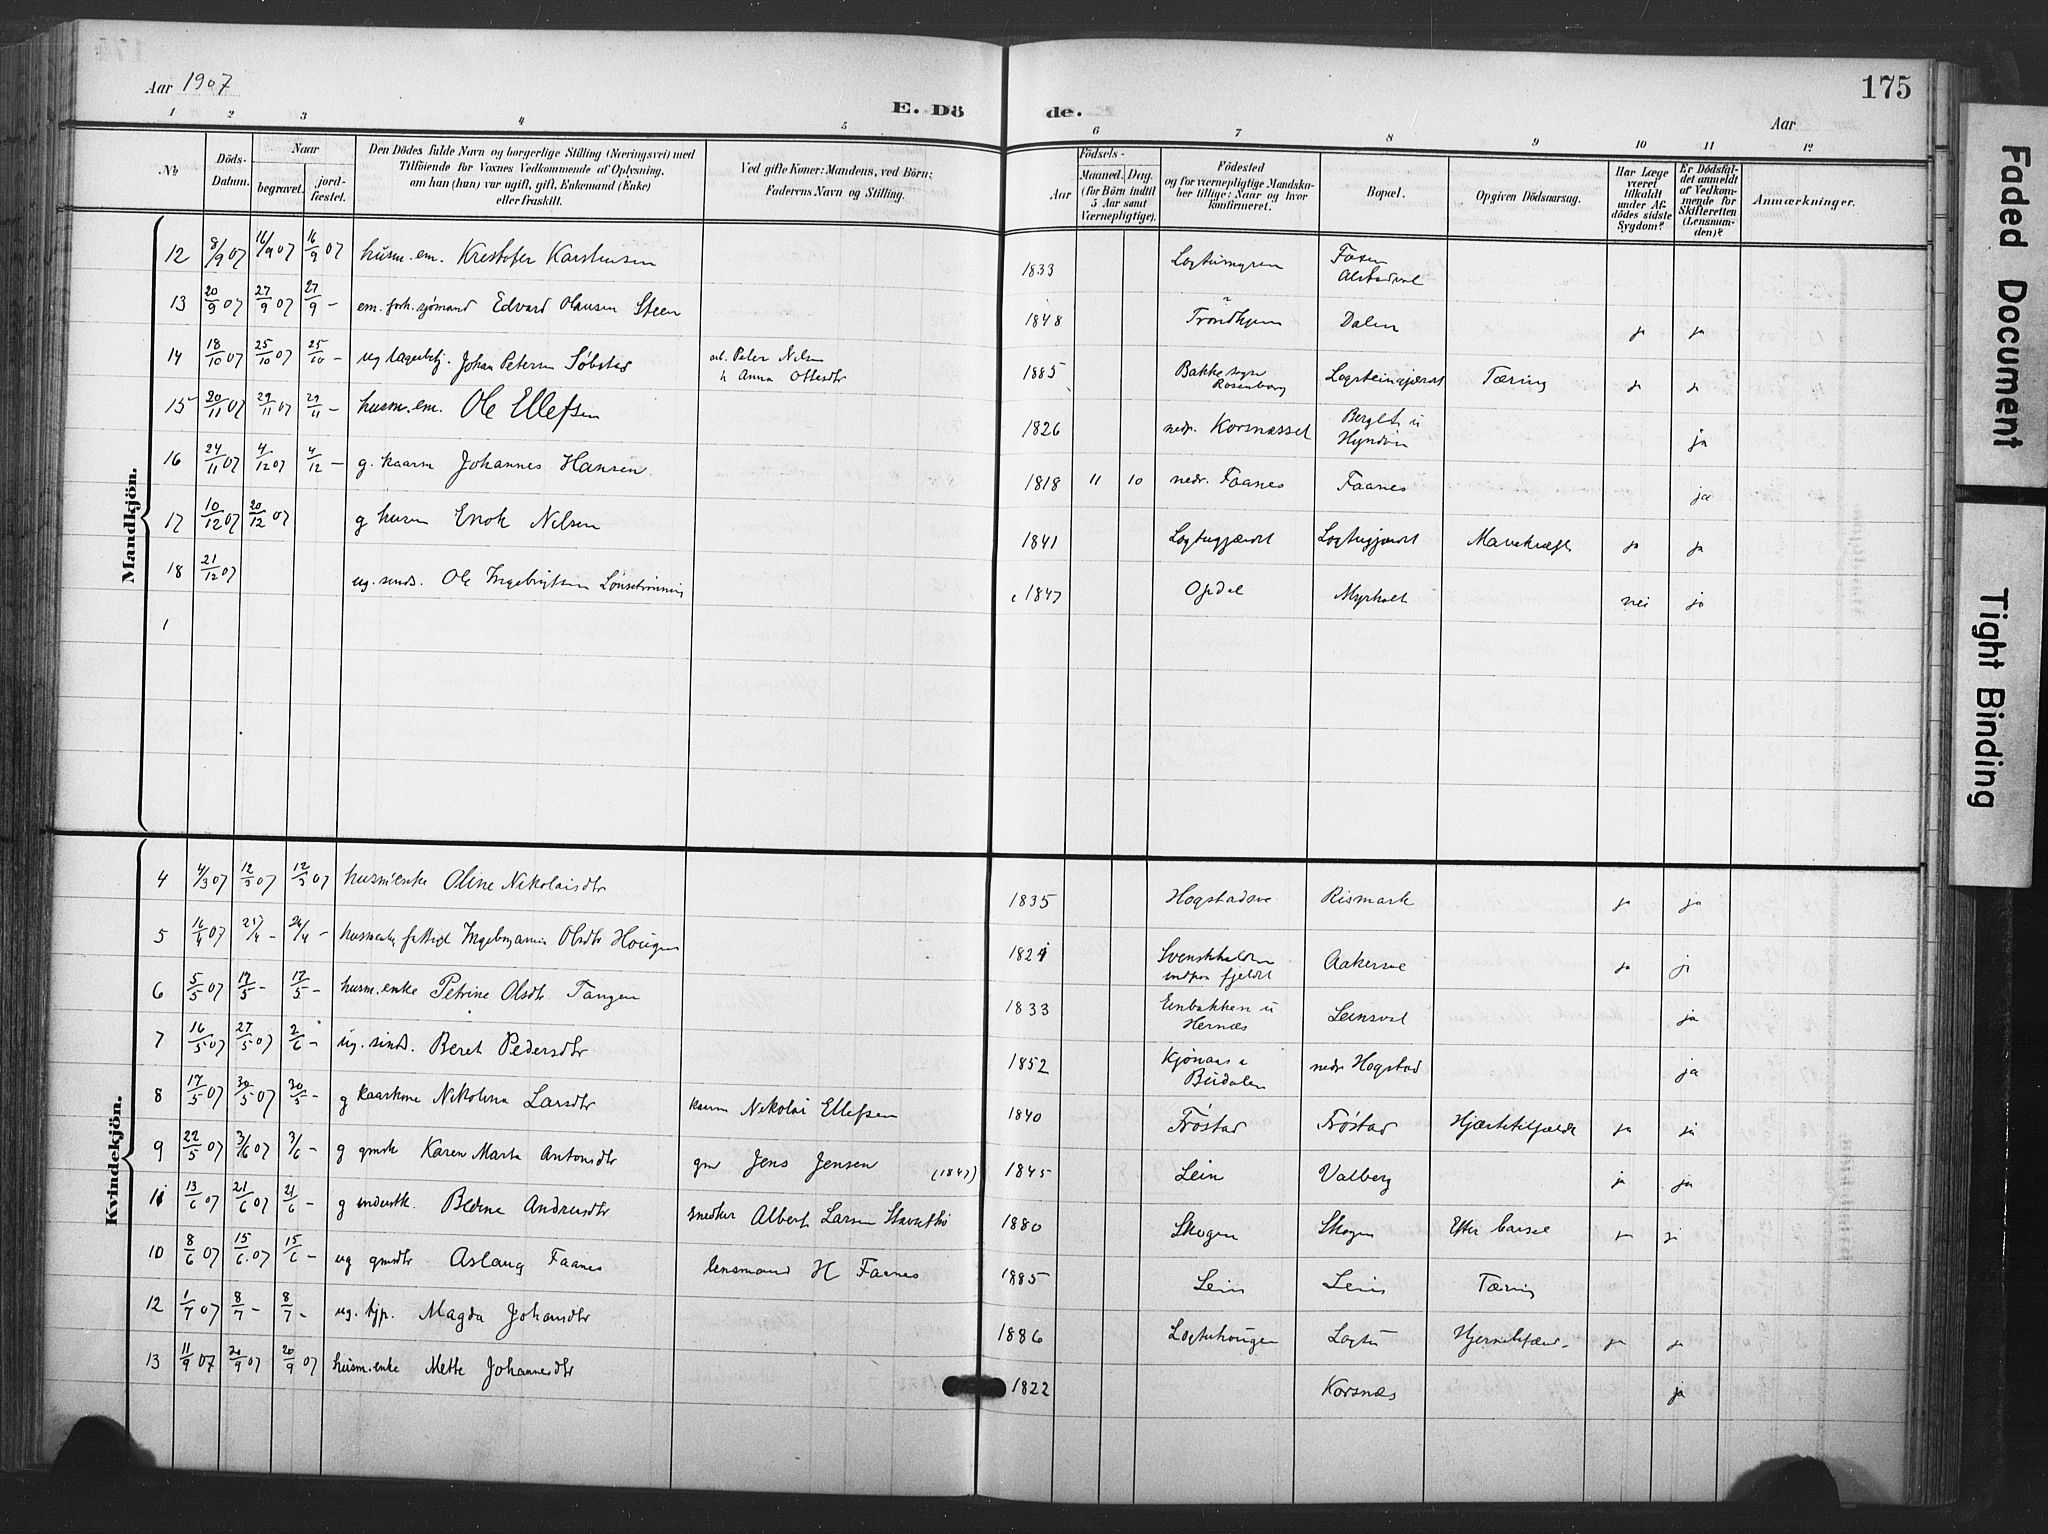 Aar 1907
E. Dö de.
Aar
175
1 2 3 4 5 6 7 8 9 10 11 12
№
Döds-Datum.
Naar
begravet.
jord-fæstet.
Den Dödes fulde Navn og borgerlige Stilling (Næringsvei) med
Tilföiende for Voxnes Vedkommende af Oplysning,
om han (hun) var ugift, gift, Enkemand (Enke)
eller fraskilt.
Ved gifte Koner: Mandens, ved Börn:
Faderens Navn og Stilling.
Födsels-
Aar
Maaned. Dag.
(for Börn indtil
5 Aar samt
Værnepligtige).
Födested
og for værnepligtige Mandska-
ber tillige: Naar og hvor
konfirmeret.
Bopæl.
Opgiven Dödsaarsag.
Har Læge
været
tilkaldt
under Af-
dödes sidste
Sygdom?
Er Dödsfal-
det anmeldt
af Vedkom-
mende for
Skifteretten
(Lensman-
den)?
Anmærkninger.
Mandkjön.
12 8/9 07 16/9 07 16/9 07 husm. em. Krestofer Karstensen 1833 Logtumyren Faxen Alstadval
13 20/9 07 27/9 07 27/9 – em. forh. sjømand Edvard Olausen Steen 1848 Trondhjem Dalen ja ja
14 18/10 07 25/10 07 25/10 – ug lagerbetj. Johan Petersen Søbstad Peter Nilsen h Anna Ottesdtr 1885 Bakke sogn Rosenborg Logsteinsjæret Tæring ja ja
15 20/11 07 29/11 07 29/11 – husm. em. Ole Ellefsen 1826 nedr. Korsnæsset Berglt u Hyndøen ja
16 24/11 07 4/12 07 4/12 – g. kaarm Johannes Hansen 1818 11 10 nedr. Faanes Faanes ja
17 10/12 07 20/12 07 g husm Enok Nilsen 1841 Logtugjærdet Logtugjærdet Mavekræft ja ja
18 21/12 07 ug. sinds. Ole Ingebrigtsen Lønsetrønning 1847 Opdal Myrholt nei ja
1
Kvindekjön.
4 4/3 07 12/3 07 12/3 07 husm'enke Oline Nikolaisdtr 1835 Hogstadsve Rismark ja ja
5 16/4 07 25/4 – 26/4 – husmenk fattigl Ingeborganna Olsdtr Hougen 1821 Svenskhalden indpaa fjeldet Aakersve ja ja
6 5/5 07 17/5 – 17/5 – husm. enke Petrine Olsdtr Tangen 1833 Einbakken u Hernæs Leinsval ja
7 16/5 07 27/5 07 2/6 – ug. sinds. Beret Pedersdtr 1852 Kjønaas i Budalen nedr Hogstad ja
8 17/5 07 30/5 07 30/5 – g kaarkone Nikolina Larsdtr kaarm Nikolai Ellefsen 1840 Frøstad Frøstad Hjærtetilfælde ja ja
9 22/5 07 3/6 07 3/6 – g gmsk Karen Marta Antonsdtr gm Jens Jensen (1847) 1845 Lein Valberg ja ja
11 13/6 07 21/6 07 21/6 – g inderstk. Bedine Andreasdtr snedker Albert Larsen Stavsethø 1880 Skogen Skogen Efter barsel ja ja
10 8/6 07 15/6. 07 15/6 – ug gmsdtr Aslaug Faanes lensmand H Faanes 1885 Lein Lein Tæring
12 1/7 07 8/7 – 8/7 – ug. tjp. Magda Johansdtr 1886 Logtuhougen Logtu ja ja
13 11/9 07 20/9 07 20/9 07 husm. enke Mette Johannesdtr 1822 Korsnæs ja
Faded Document
Tight Binding